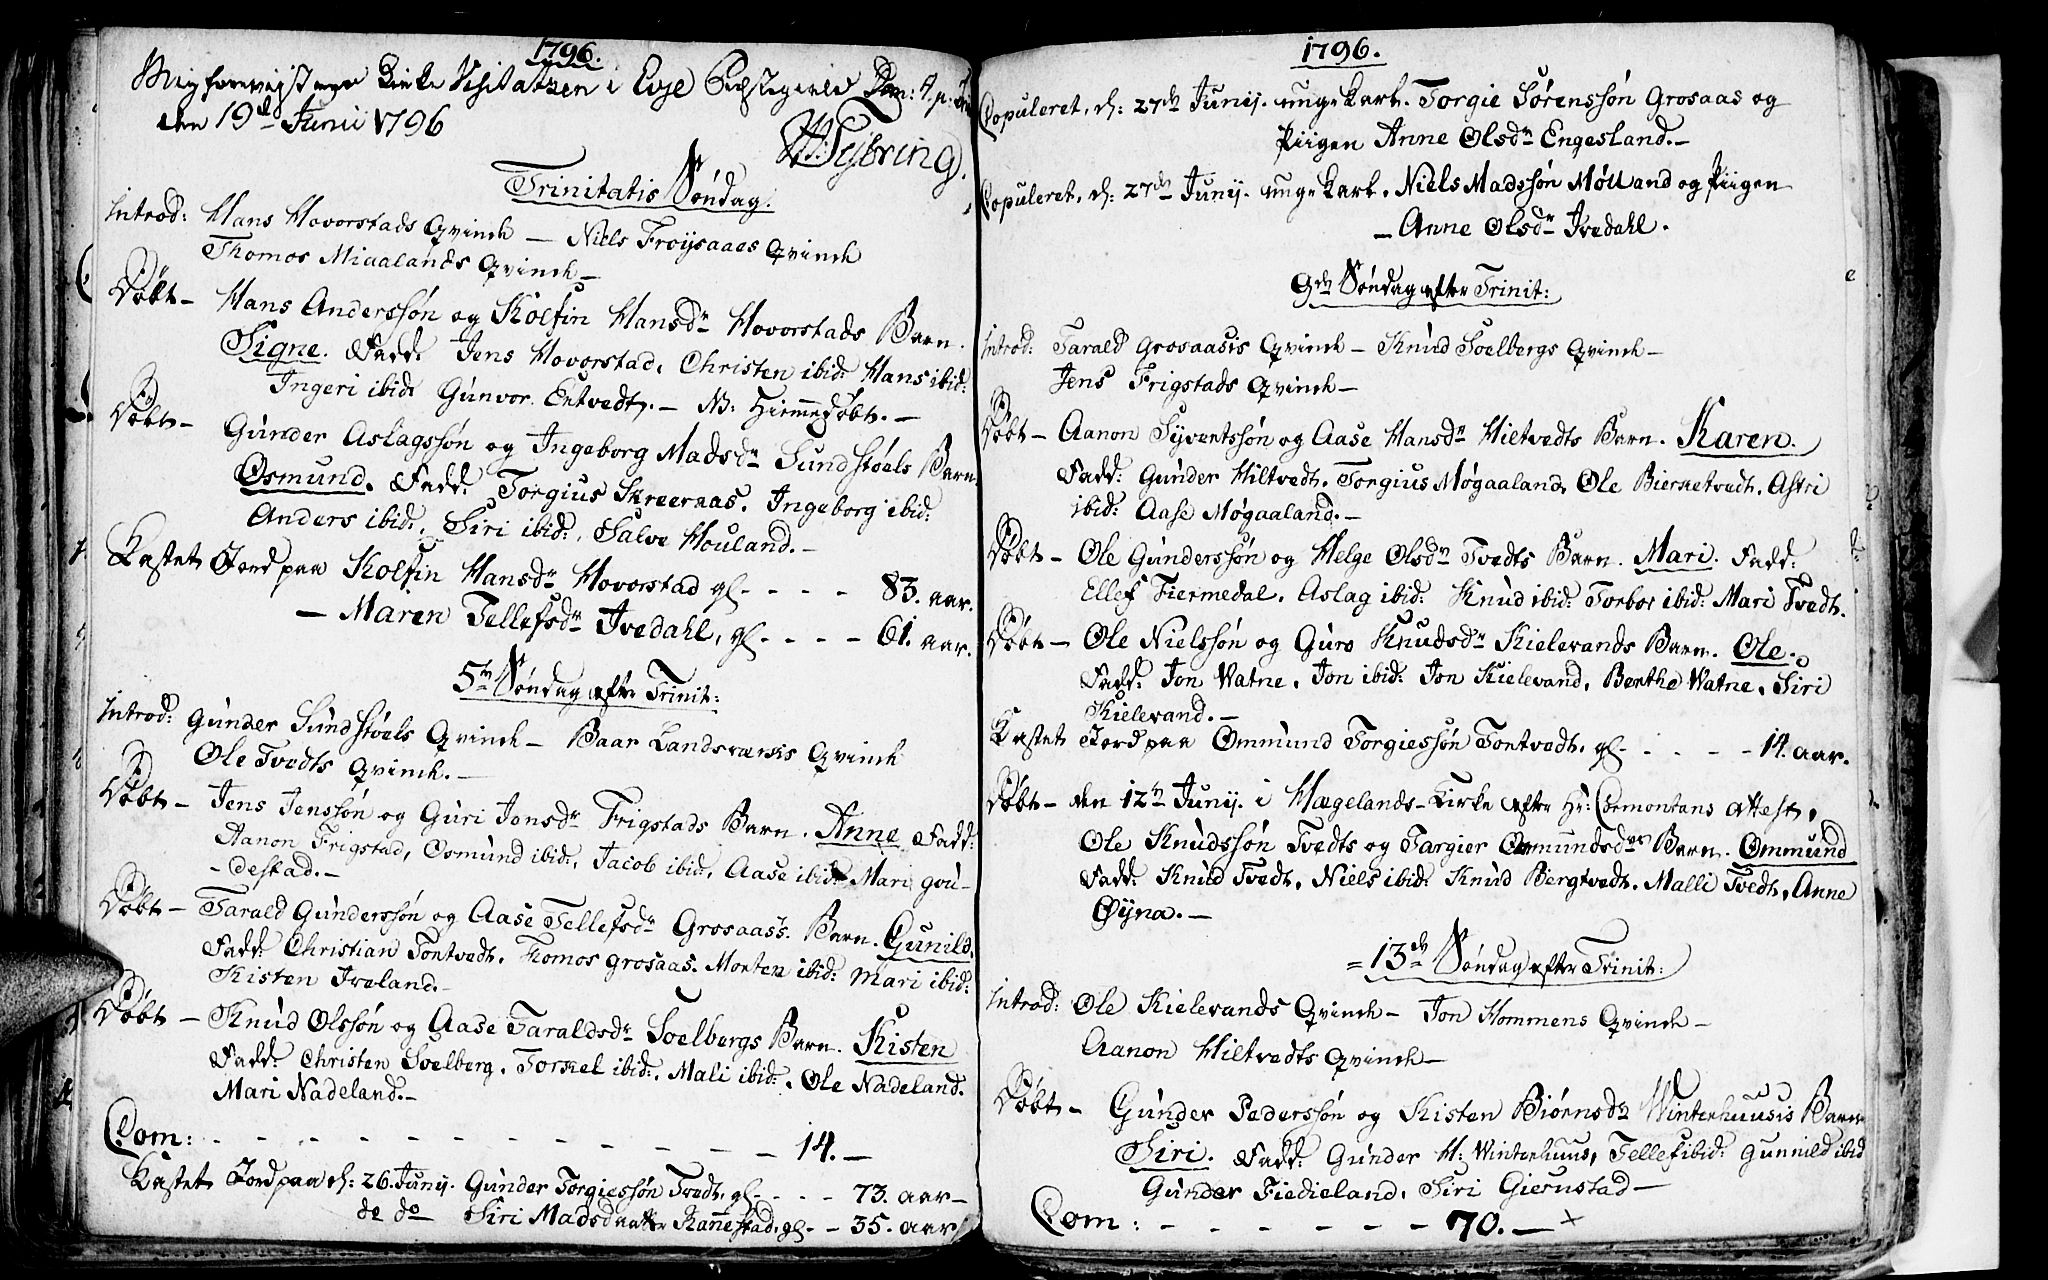 1796.
Visitatzen i Evje
den 19de Junii 1796
Trinitatis Søndag.
Introd: Hans Hovorstads Qvinde — Niels Frøysaaes Qvinde
Thomos Migalands Qvinde —
Døbt — Hans Anderssøn og Kolfin Hansdr Hovorstads Barn.
Signe. Fadd: Jens Hovorstad, Christen ibid: Hans ibid:
Ingeri ibid: Gunvor Eftvedt. — NB: Hiemmedøbt. —
Døbt — Gunder Aslagssøn og Ingeborg Madsdr Sundstøels Barn
Osmund. Fadd: Torgius Skreeraas. Ingeborg ibid:
Anders ibid:, Siri ibid:, Salve Houland. —
Kastet Jord paa Kolfin Hansdr Hovorstad gl - - - - 83. aar.
— Maren Tellefsdr Ivedahl, gl - - - - 61. aar.
5te Søndag efter Trinit:
Introd: Gunder Sundstøels Qvinde — Baar Landsværks Qvinde
Ole Tvedts Qvinde. —
Døbt — Jens Jenssøn og Guri Jonsdr Frigstads Barn. Anne Fadd:
Aanon Frigstad, Osmund ibid:, Jacob ibid, Aase ibid: Mari Gou-
-destad. —
Døbt — Tarald Gunderssøn og Aase Tellefsdr Grosaas's Barn. Gunild.
Fadd: Christian Tontvedt, Tomos Grosaas. Morten ibid: Mari ibid:
Kisten Iveland. —
Døbt — Knud Olssøn og Aase Taraldsdr Soelbergs Barn. Kisten
Fadd: Christen Soelberg, Torkel ibid:, Mali ibid:, Ole Nadeland.
Mari Nadeland. —
Com: - - - - - - - - - - - 14. —
Kastet Jord paa d: 26. Junij. Gunder Torgiessøn Tvedt, gl - - - - 73. aar —
do do Siri Madsdaatter Rannestad, gl - - 35. aar
1796.
Copuleret, d: 27de Junij. unge Karl. Torgie Sørenssøn Grosaas og
Piigen Anne Olsdr Engesland. —
Copuleret, d: 27de Junij. unge Karl. Niels Madssøn Mølland og Piigen
— Anne Olsdr Ivedahl.
9de Søndag efter Trinit:
Introd: Tarald Grosaasis Qvinde — Knud Soelbergs Qvinde —
Jens Frigstads Qvinde —
Døbt — Aanon Syvertssøn og Aase Hansdr Hiltvedts Barn. Karen.
Fadd: Gunder Hiltvedt. Torgius Møgaaland, Ole Birketvedt. Astri
ibid: Aase Møgaaland. —
Døbt — Ole Gunderssøn og Helge Olsdr Tvedts Barn. Mari. Fadd:
Ellef Fiermedal, Aslag ibid: Knud ibid: Torbor ibid: Mari Tvedt.
Døbt — Ole Nielssøn og Guro Knudsdr Kielevands Barn. Ole.
Fadd: Jon Vatne, Jon ibid: Jon Kielevand, Berthe Vatne, Siri
Kielevand. —
Kastet Jord paa Ommund Torgiessøn Tontvedt. gl - - - - - 14. aar.
Døbt — den 12te Junij. i Hægelands-Kirke efter Hr: Cormontans attest,
Ole Knudssøn Tvedts og Targier Ommundsdrs Barn. Ommund
Fadd: Knud Tvedt. Niels ibid: Knud Bergtvedt. Malli Tvedt, Anne
Øyna. —
= 13de Søndag efter Trinit:
Introd: Ole Kielevands Qvinde — Jon Hommens Qvinde —
Aanon Hiltvedts Qvinde —
Døbt — Gunder Pederssøn og Kisten Biørnsdr Winterhuusis Barn
Siri. Fadd: Gunder H: Winterhuus, Tellef ibid: Gunnild ibid
Gunder Fiedieland. Siri Gierustad —
Com: - - - - - - 70. —